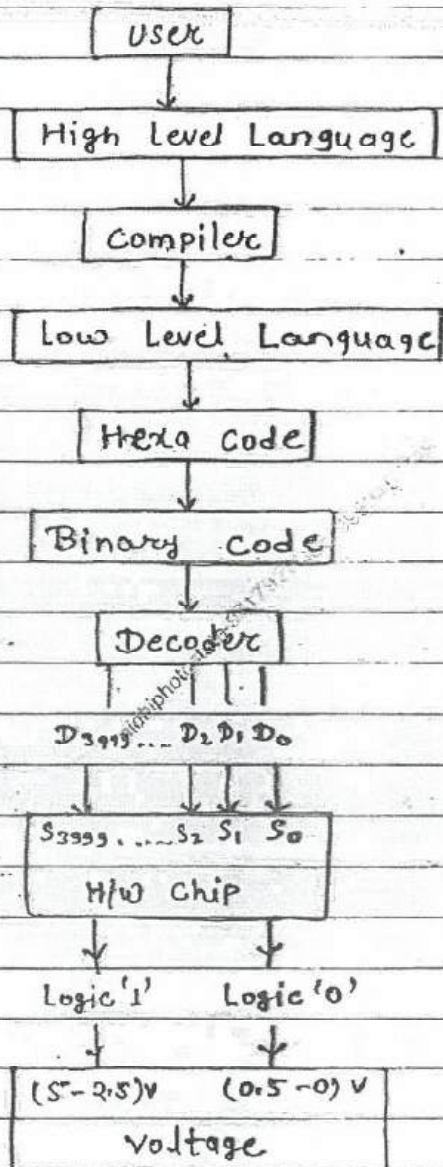 User
High Level Language
Compiler
Low Level Language
Hexa code
Binary code
Decoder
D3999.... D2 D1 D0
S3999..... S2 S1 S0
H/W Chip
Logic '1' Logic '0'
(5-2.5)V (0.5-0) V
Voltage